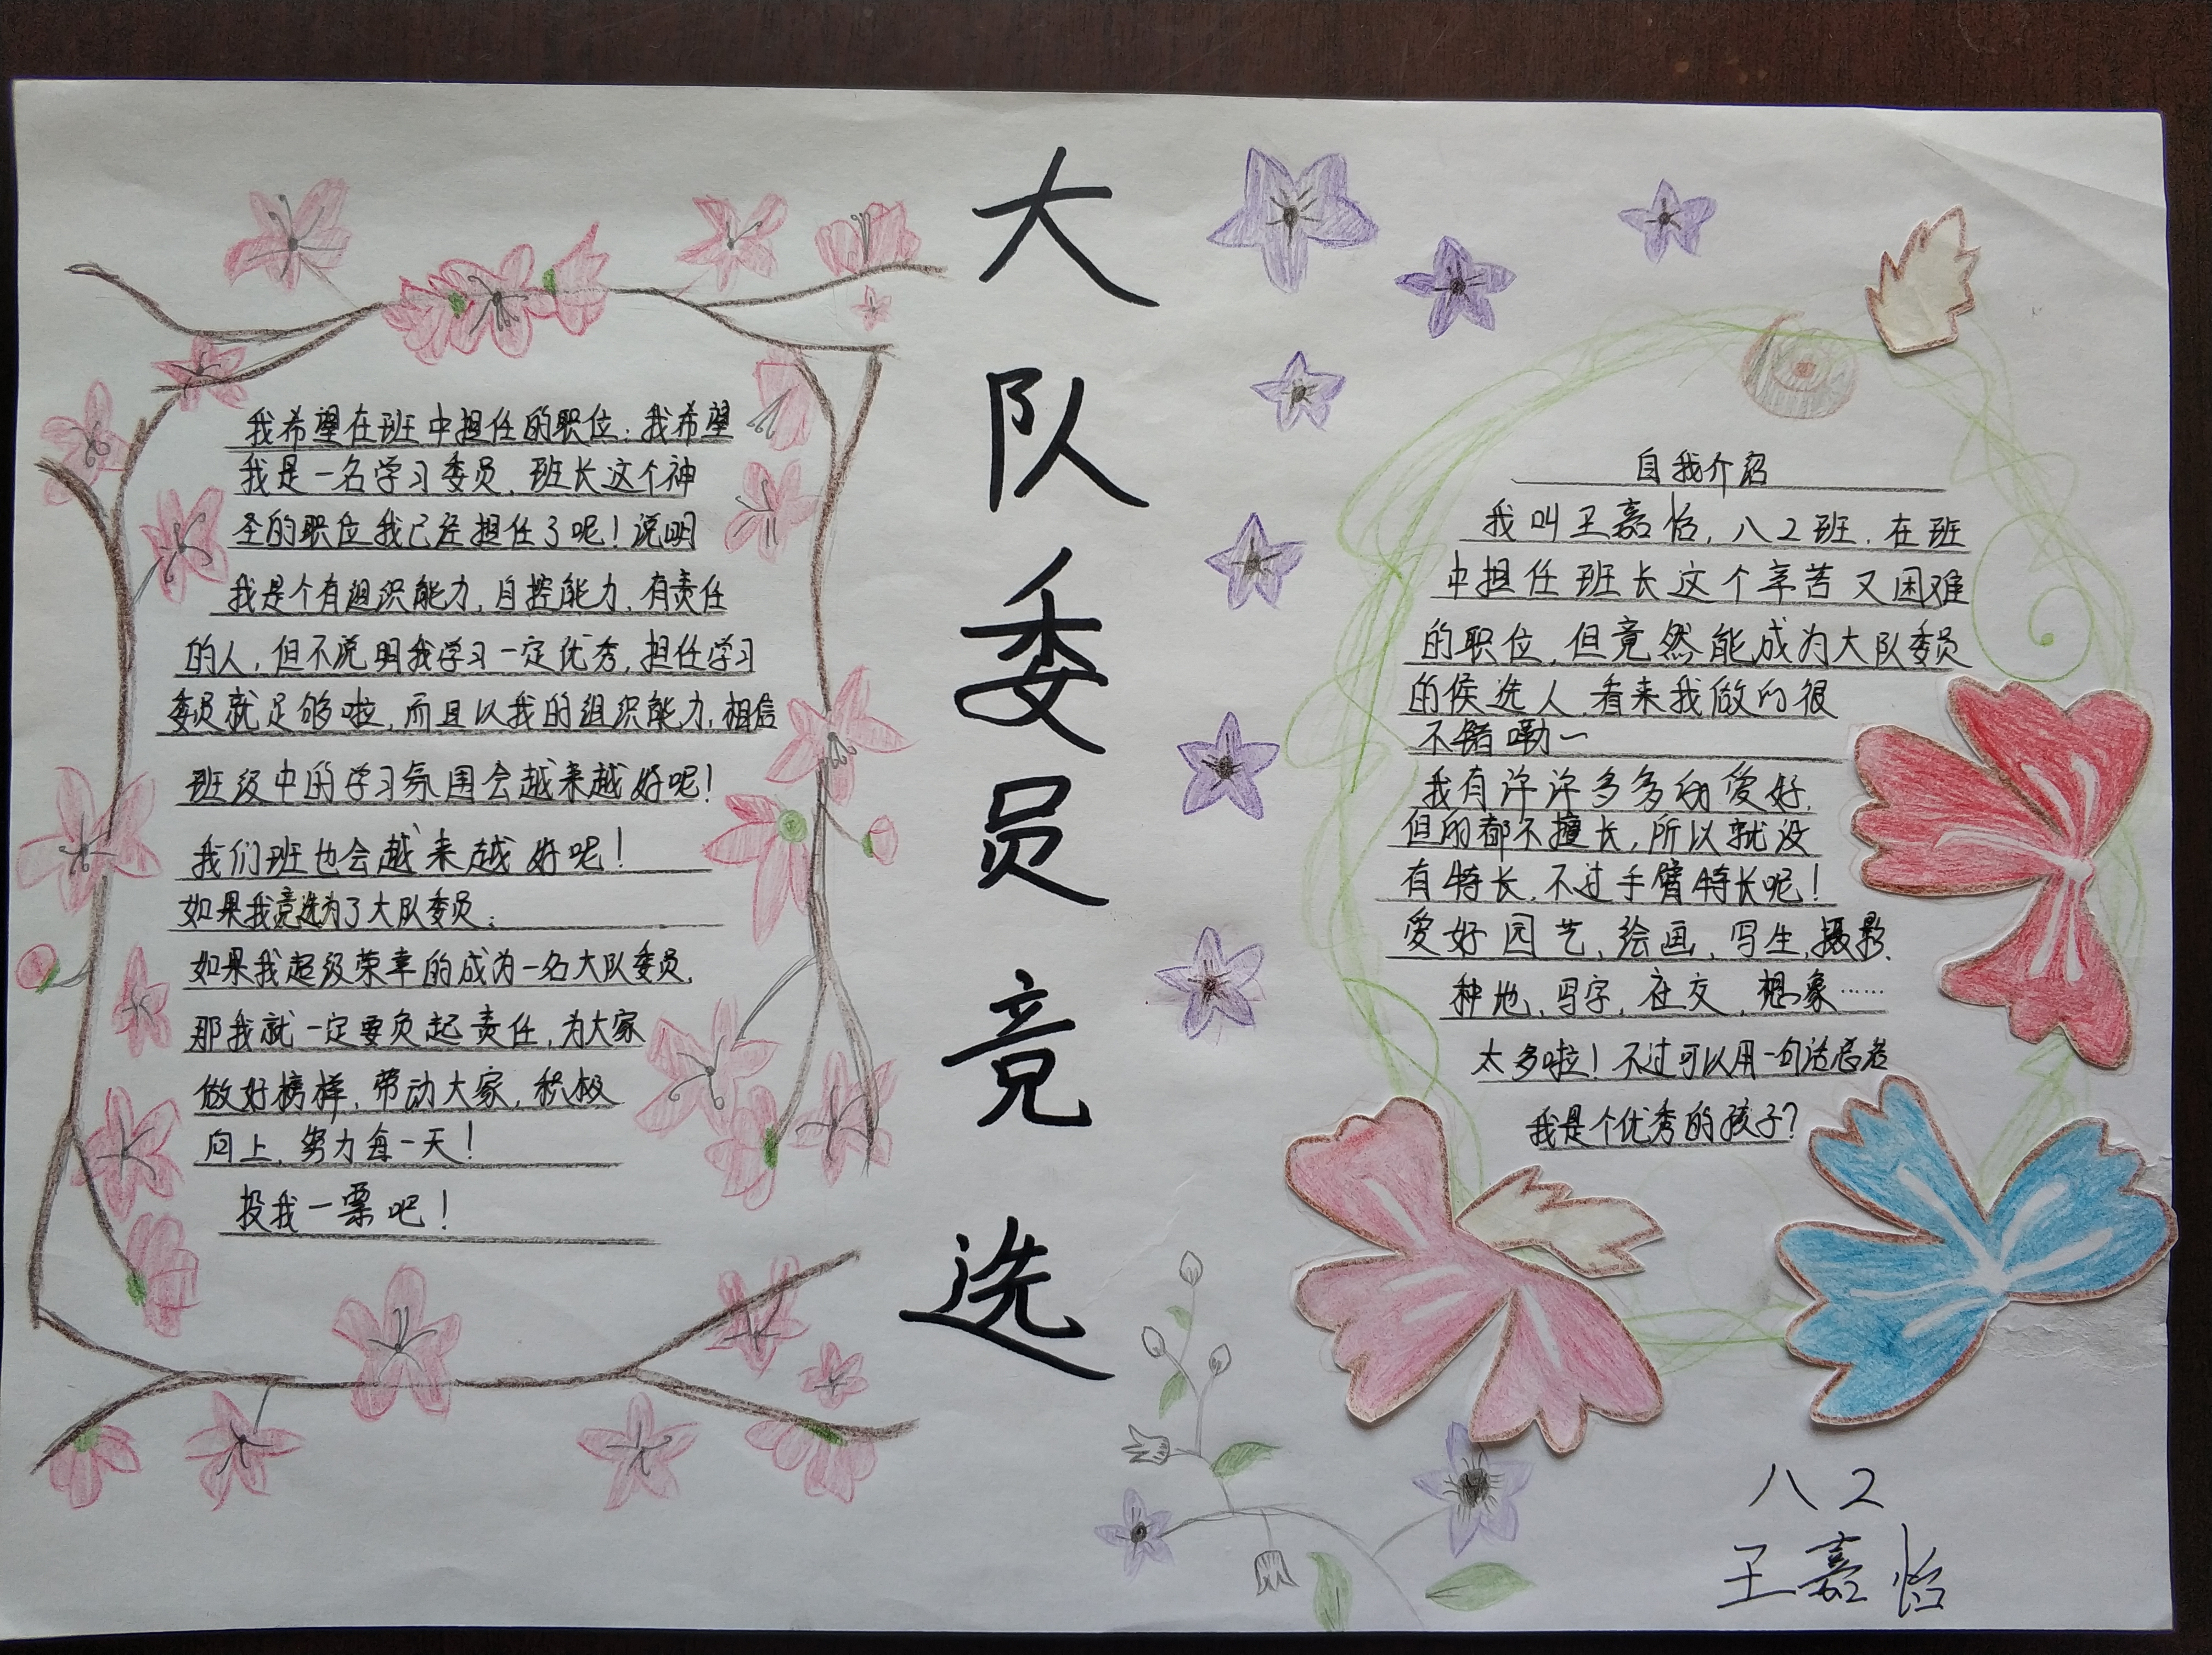 大队委员竞选
我希望在班中担任的职位：我希望
我是一名学习委员，班长这个神
圣的职位我已经担任了呢！说明
我是个有组织能力，自控能力，有责任
的人，但不说明我学习一定优秀，担任学习
委员就足够啦，而且以我的组织能力，相信
班级中的学习氛围会越来越好呢！
我们班也会越来越好呢！
如果我竞选为了大队委员：
如果我超级荣幸的成为一名大队委员，
那我就一定要负起责任，为大家
做好榜样，带动大家，积极
向上，努力每一天！
投我一票吧！
自我介绍
我叫王嘉怡，八2班，在班
中担任班长这个辛苦又困难
的职位，但竟然能成为大队委员
的候选人，看来我做的很
不错嘞～
我有许许多多的爱好，
但的都不擅长，所以就没
有特长，不过手臂特长呢！
爱好园艺，绘画，写生，摄影，
种地，写字，社交，想象……
太多啦！不过可以用一句话总结
我是个优秀的孩子？
八2
王嘉怡